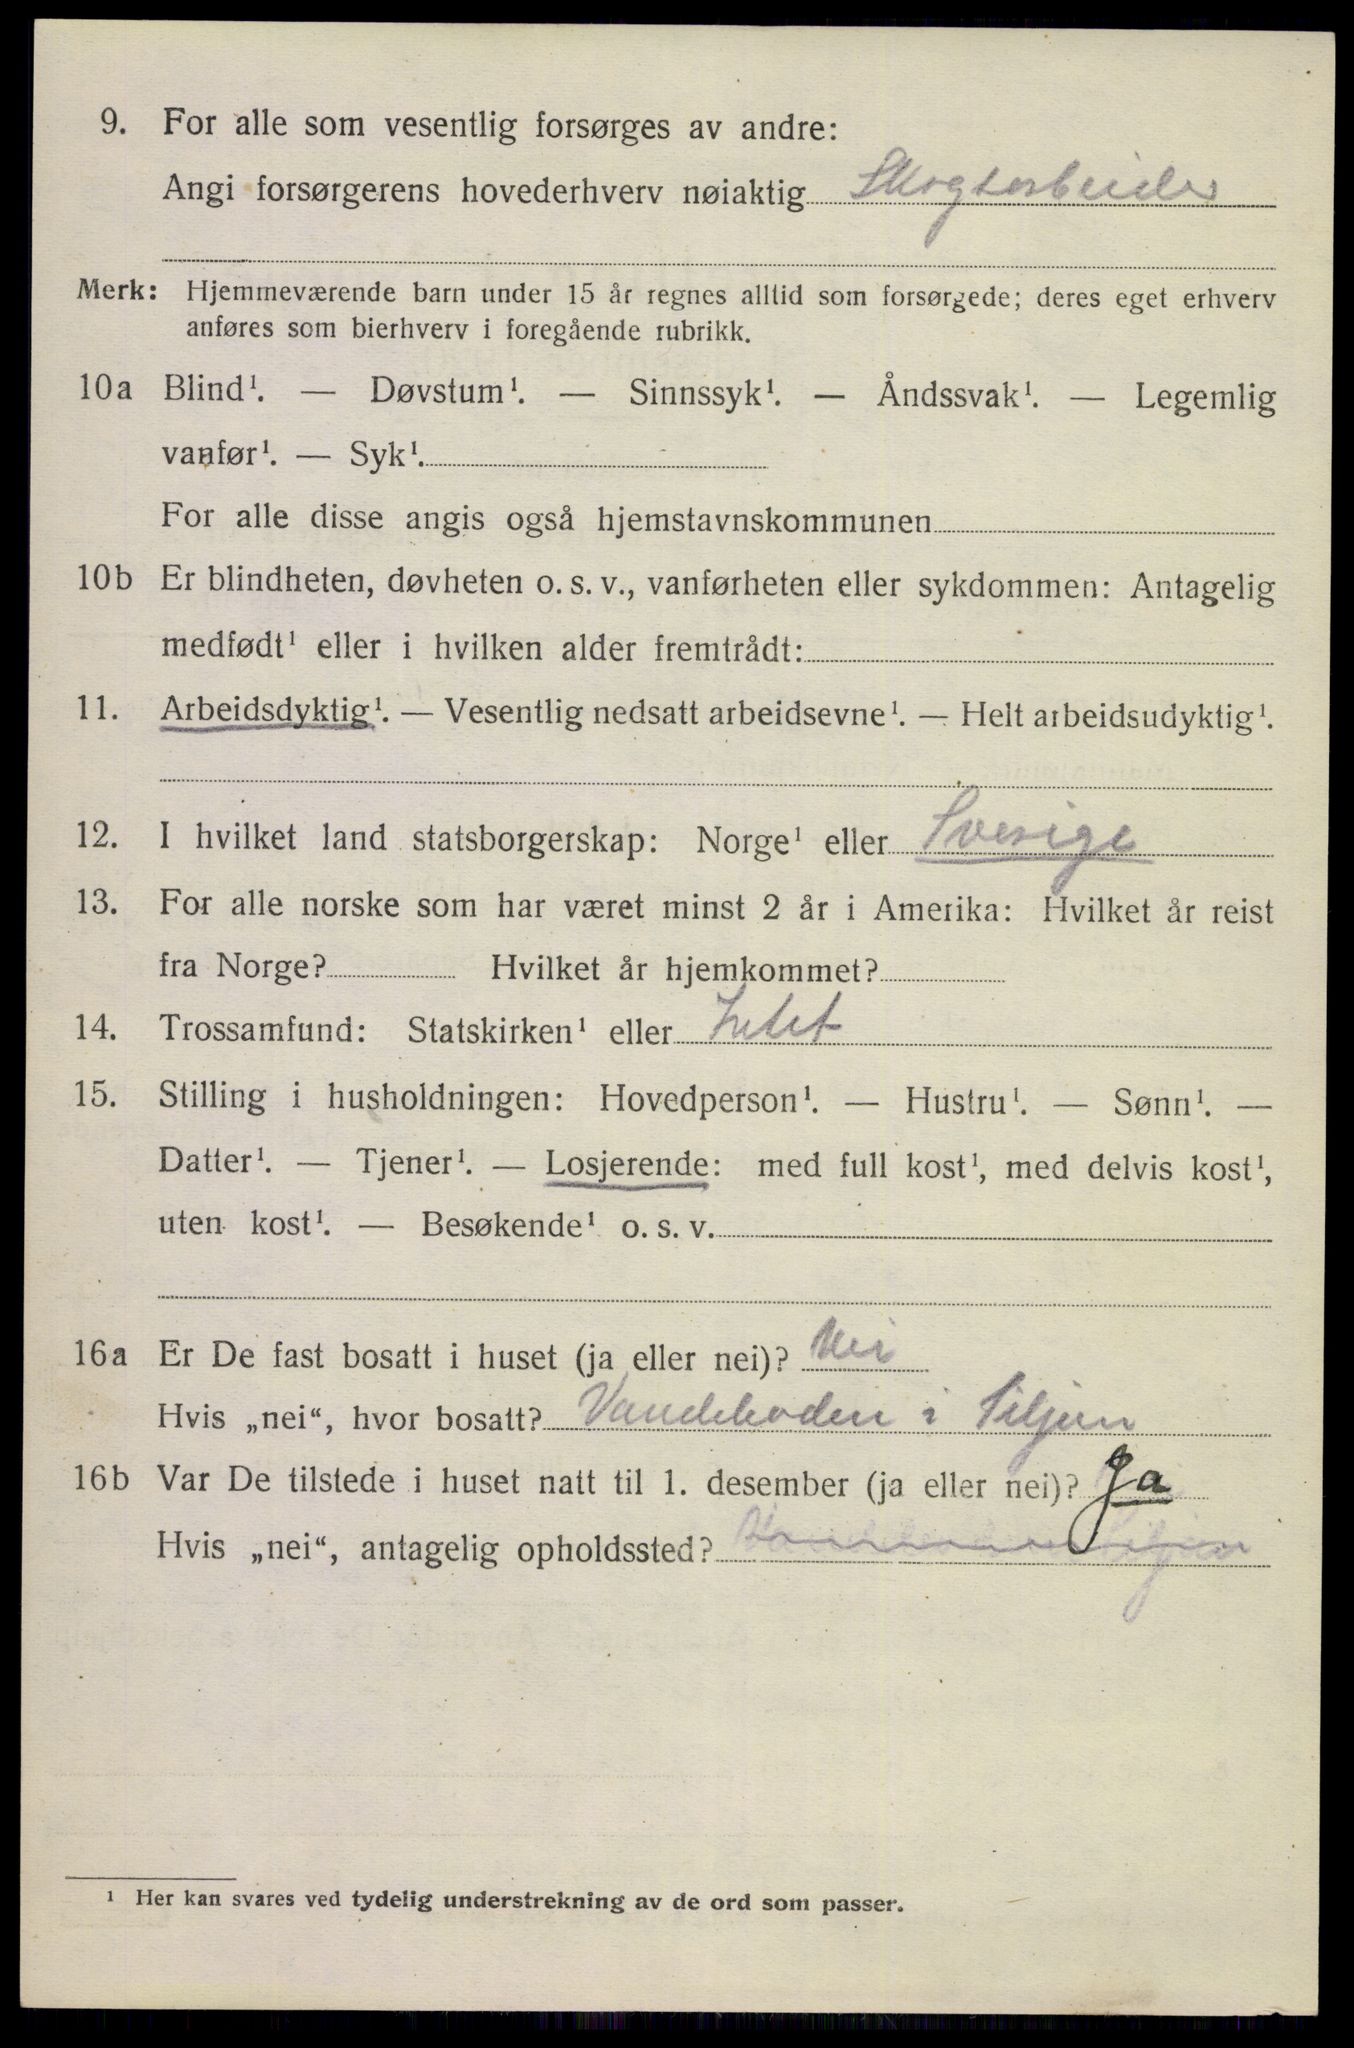 9. For alle som vesentlig forsørges av andre:
Angi forsørgerens hovederhverv nøiaktig Skogsarbeider
Merk: Hjemmeværende barn under 15 år regnes alltid som forsørgede; deres eget erhverv
anføres som bierhverv i foregående rubrikk.
10a Blind¹. — Døvstum¹. — Sinnssyk¹. — Åndssvak¹. — Legemlig
vanfør¹. — Syk¹.
For alle disse angis også hjemstavnskommunen
10b Er blindheten, døvheten o. s. v., vanførheten eller sykdommen: Antagelig
medfødt¹ eller i hvilken alder fremtrådt:
11. Arbeidsdyktig¹. — Vesentlig nedsatt arbeidsevne¹. — Helt arbeidsudyktig¹.
12. I hvilket land statsborgerskap: Norge¹ eller Sverige
13. For alle norske som har været minst 2 år i Amerika: Hvilket år reist
fra Norge? Hvilket år hjemkommet?
14. Trossamfund: Statskirken¹ eller Intet
15. Stilling i husholdningen: Hovedperson¹. — Hustru¹. — Sønn¹. —
Datter¹. — Tjener¹. — Losjerende: med full kost¹, med delvis kost¹,
uten kost¹. — Besøkende¹ o. s. v.
16a Er De fast bosatt i huset (ja eller nei)? Nei
Hvis „nei“, hvor bosatt? i Siljan
16b Var De tilstede i huset natt til 1. desember (ja eller nei)? Ja
Hvis „nei“, antagelig opholdssted?
¹ Her kan svares ved tydelig understrekning av de ord som passer.